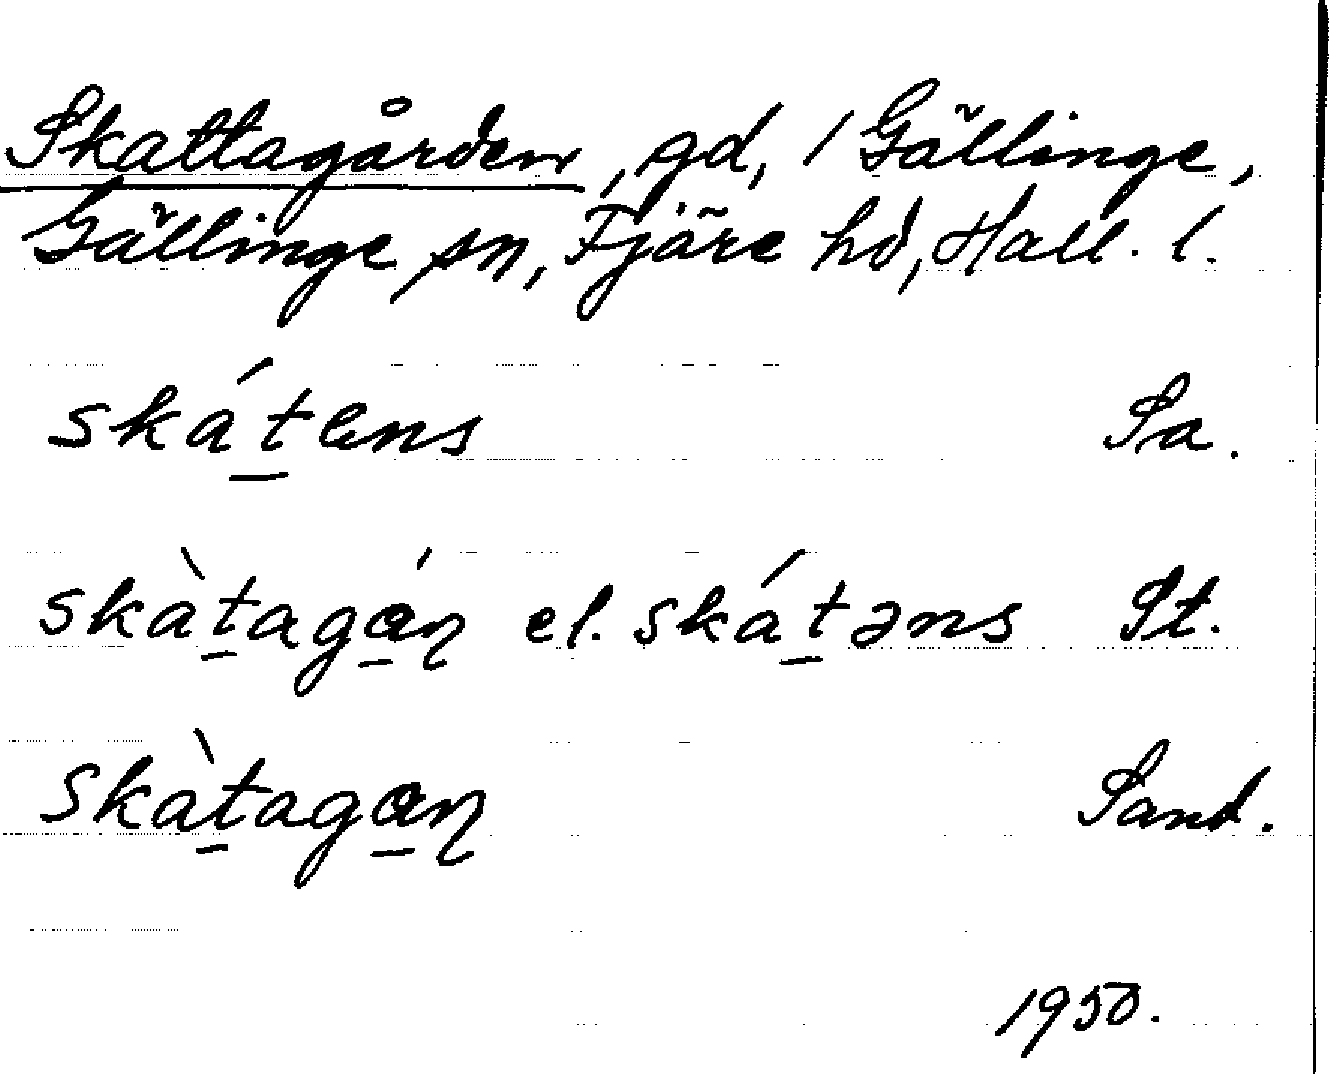 Skattagården, gd, / Gällinge,
Gällinge sn, Fjäre hd, Hall. l.
skát̲ens Sa.
skàt̲agά̲ɳ el. skát̲əns St.
skàt̲agα̲ɳ Sand.
1950.